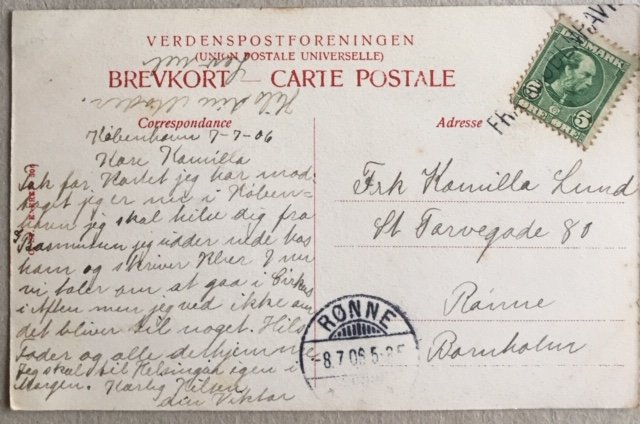 VERDENSPOSTFORENINGEN
(UNION POSTALE UNIVERSELLE)
BREVKORT — CARTE POSTALE
Hils din Moder.
Correspondance
Adresse
København 7-7-06
Kære Kamilla
Tak for Kortet jeg har mod-
taget jeg er nu i Køben-
havn jeg skal hilse dig fra
Rasmussen jeg sidder inde hos
ham og skriver
vi taler om at gaa i Cirkus
i Aften men jeg ved ikke om
det bliver til noget. Hils
Fader og alle de hjemme
jeg skal til Helsingør igen i
Morgen. Kærlig Hilsen
din Viktor
Frk Kamilla Lund
St Torvegade 80
Rønne
Bornholm
DANMARK
5 5
RØNNE
8.7.06